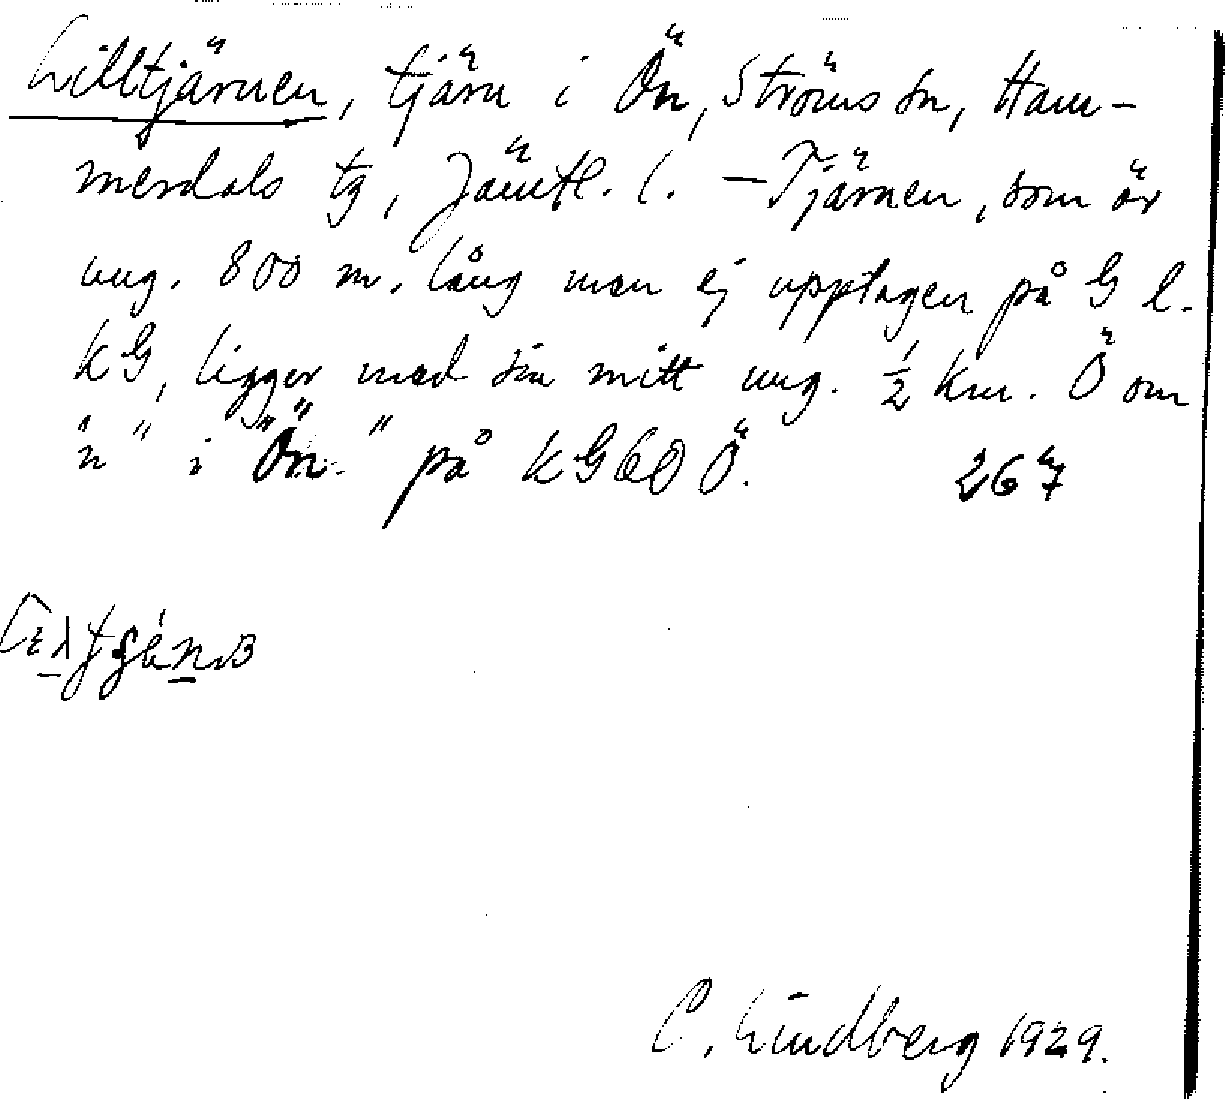 Lilltjärnen, tjärn i Ön, Ströms sn, Ham-
merdals tg, Jämtl. l. - Tjärnen, som är
ung. 800 m. lång men ej upptagen på G l.
kG, ligger med sin mitt ung. ½ km. Ö om
"n" i "Ön" på kG60 Ö. 267
C. Lindberg 1929.